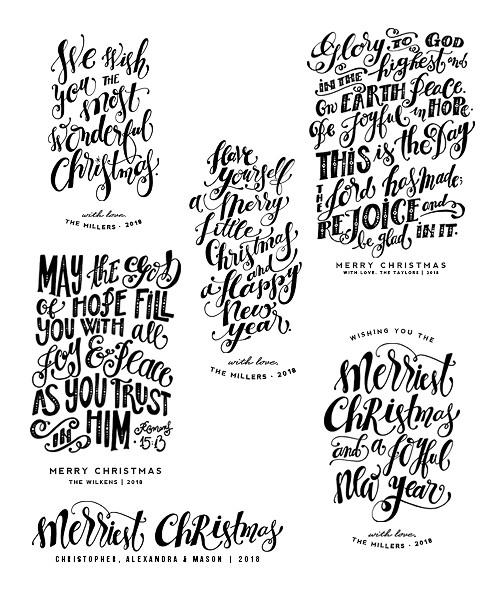 We Wish
you THE
most
Wonderful
Christmas.
with love,
THE MILLERS · 2018
Glory TO GOD
IN THE highest and
ON EARTH Peace.
Be Joyful in HOPE.
THIS is the Day
THE Lord has Made;
REJOICE and
be glad IN IT.
MERRY CHRISTMAS
WITH LOVE, THE TAYLORS | 2018
Have
yourself
a Merry
Little
Christmas
and
a Happy
New
year.
with love,
THE MILLERS · 2018
MAY the GOD
of HOPE FILL
YOU WITH all
Joy & Peace
AS YOU TRUST
IN HIM Romans
15:13
MERRY CHRISTMAS
THE WILKENS | 2018
WISHING YOU THE
Merriest
CHRistmas
and a Joyful
New year
with love,
THE MILLERS · 2018
Merriest CHRistmas
CHRISTOPHER, ALEXANDRA & MASON | 2018